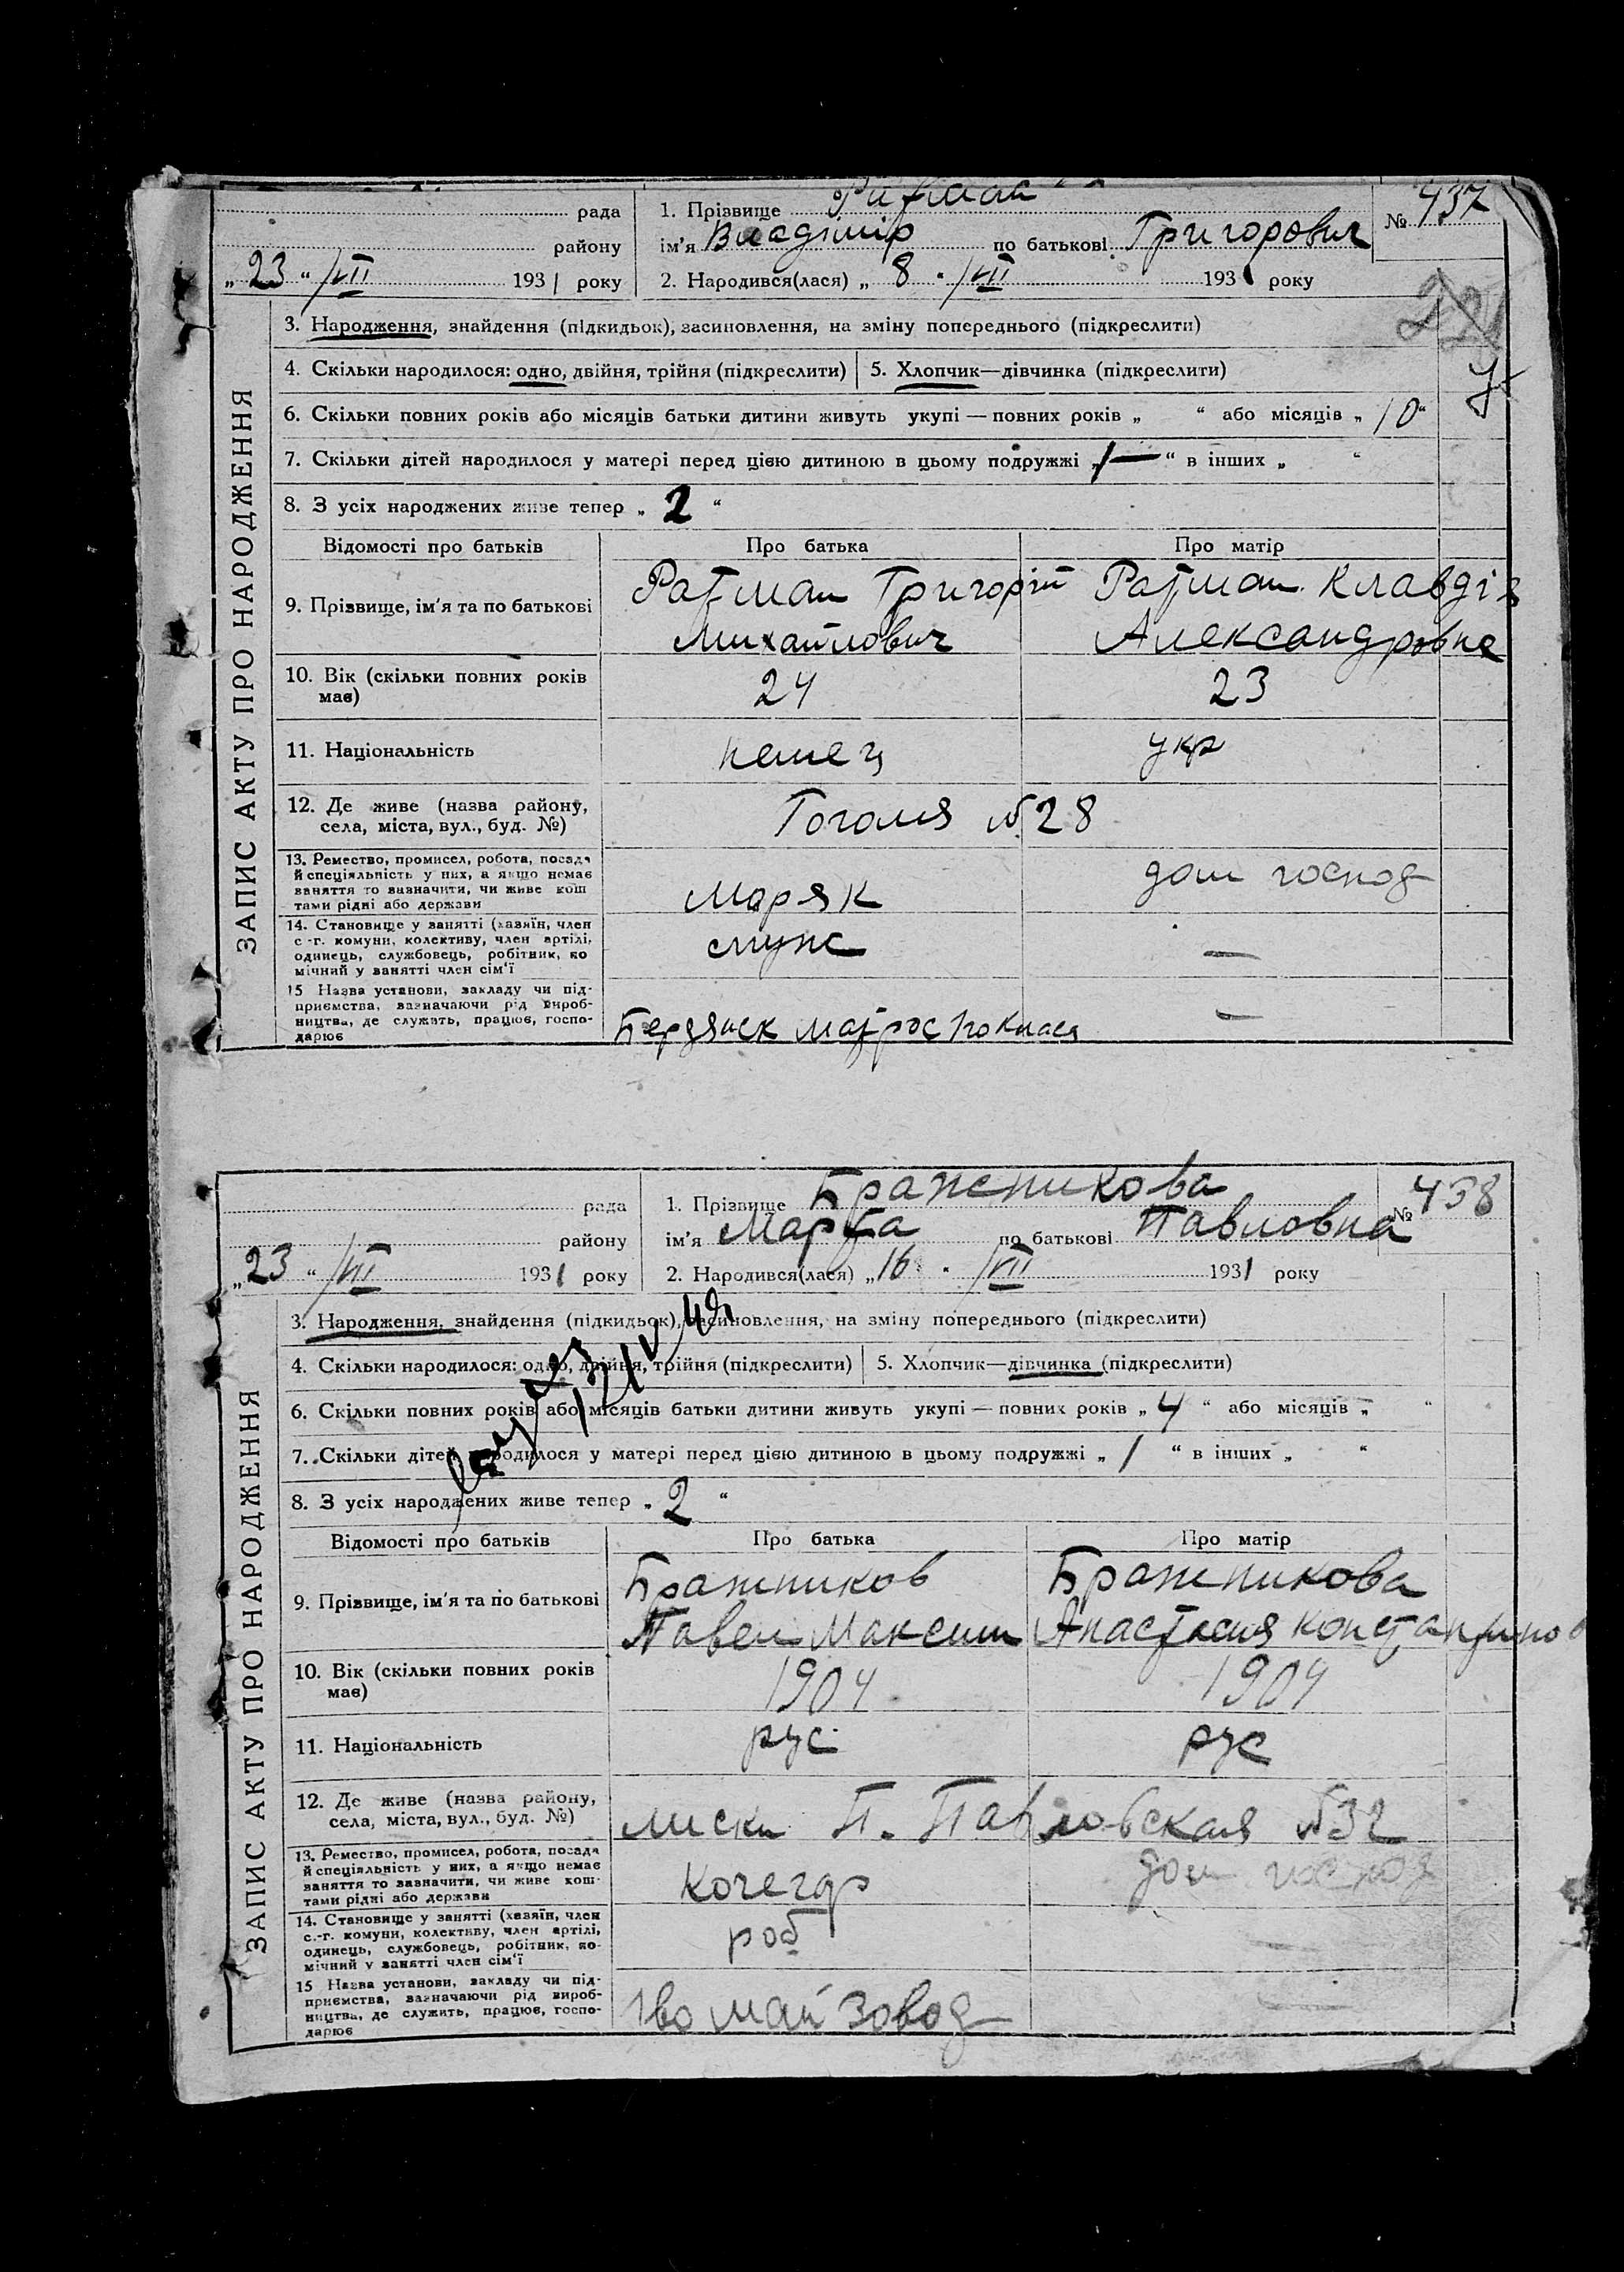 рада
району
„ 23 “ /VII 1931 року
1. Прізвище Ратман
ім'я Владімір по батькові Григорович
2. Народився(лася) „ 8 “ /VII 1931 року
№ 437
ЗАПИС АКТУ ПРО НАРОДЖЕННЯ
3. Народження, знайдення (підкидьок), засиновлення, на зміну попереднього (підкреслити)
4. Скільки народилося: одно, двійня, трійня (підкреслити) 5. Хлопчик—дівчинка (підкреслити)
6. Скільки повних років або місяців батьки дитини живуть укупі — повних років „ “ або місяців „ 10 “
7. Скільки дітей народилося у матері перед цією дитиною в цьому подружжі „ 1 — “ в інших „ “
8. З усіх народжених живе тепер „ 2 “
Відомості про батьків Про батька Про матір
9. Прізвище, ім'я та по батькові Ратман Григорій Ратман Клавдія
Михайлович Александровна
10. Вік (скільки повних років має) 24 23
11. Національність немец укр
12. Де живе (назва району, села, міста, вул., буд. №) Гоголя № 28
13. Ремество, промисел, робота, посада
й спеціяльність у них, а якщо немає
заняття то визначити, чи живе кош
тами рідні або держави
Моряк дом господ
14. Становище у занятті (хазяїн, член
с.-г. комуни, колективу, член артілі,
одинець, службовець, робітник, по
мічний у занятті член сім'ї
служ —
15 Назва установи, закладу чи під-
приємства, зазначаючи рід вироб-
ництва, де служить, працює, госпо-
дарює
Бердянск матрос —
рада
району
„ 23 “ /VII 1931 року
1. Прізвище Бражникова
ім'я Марфа по батькові Павловна
2. Народився(лася) „ 16 “ /VII 1931 року
№ 438
ЗАПИС АКТУ ПРО НАРОДЖЕННЯ
3. Народження, знайдення (підкидьок), засиновлення, на зміну попереднього (підкреслити)
4. Скільки народилося: одно, двійня, трійня (підкреслити) 5. Хлопчик—дівчинка (підкреслити)
6. Скільки повних років або місяців батьки дитини живуть укупі — повних років „ 4 “ або місяців „ “
7. Скільки дітей народилося у матері перед цією дитиною в цьому подружжі „ 1 “ в інших „ “
8. З усіх народжених живе тепер „ 2 “
Відомості про батьків Про батька Про матір
9. Прізвище, ім'я та по батькові Бражников Бражникова
Павел Максим Анастасия Константинов
10. Вік (скільки повних років має) 1904 1904
11. Національність рус рус
12. Де живе (назва району, села, міста, вул., буд. №) Лиски П. Павловская № 32
13. Ремество, промисел, робота, посада
й спеціяльність у них, а якщо немає
заняття то зазначити, чи живе кош-
тами рідні або держави
Кочегар дом господ
14. Становище у занятті (хазяїн, член
с.-г. комуни, колективу, член артілі,
одинець, службовець, робітник, по-
мічний у занятті член сім'ї
роб —
15 Назва установи, закладу чи під-
приємства, зазначаючи рід вироб-
ництва, де служить, працює, госпо-
дарює
1во май завод —